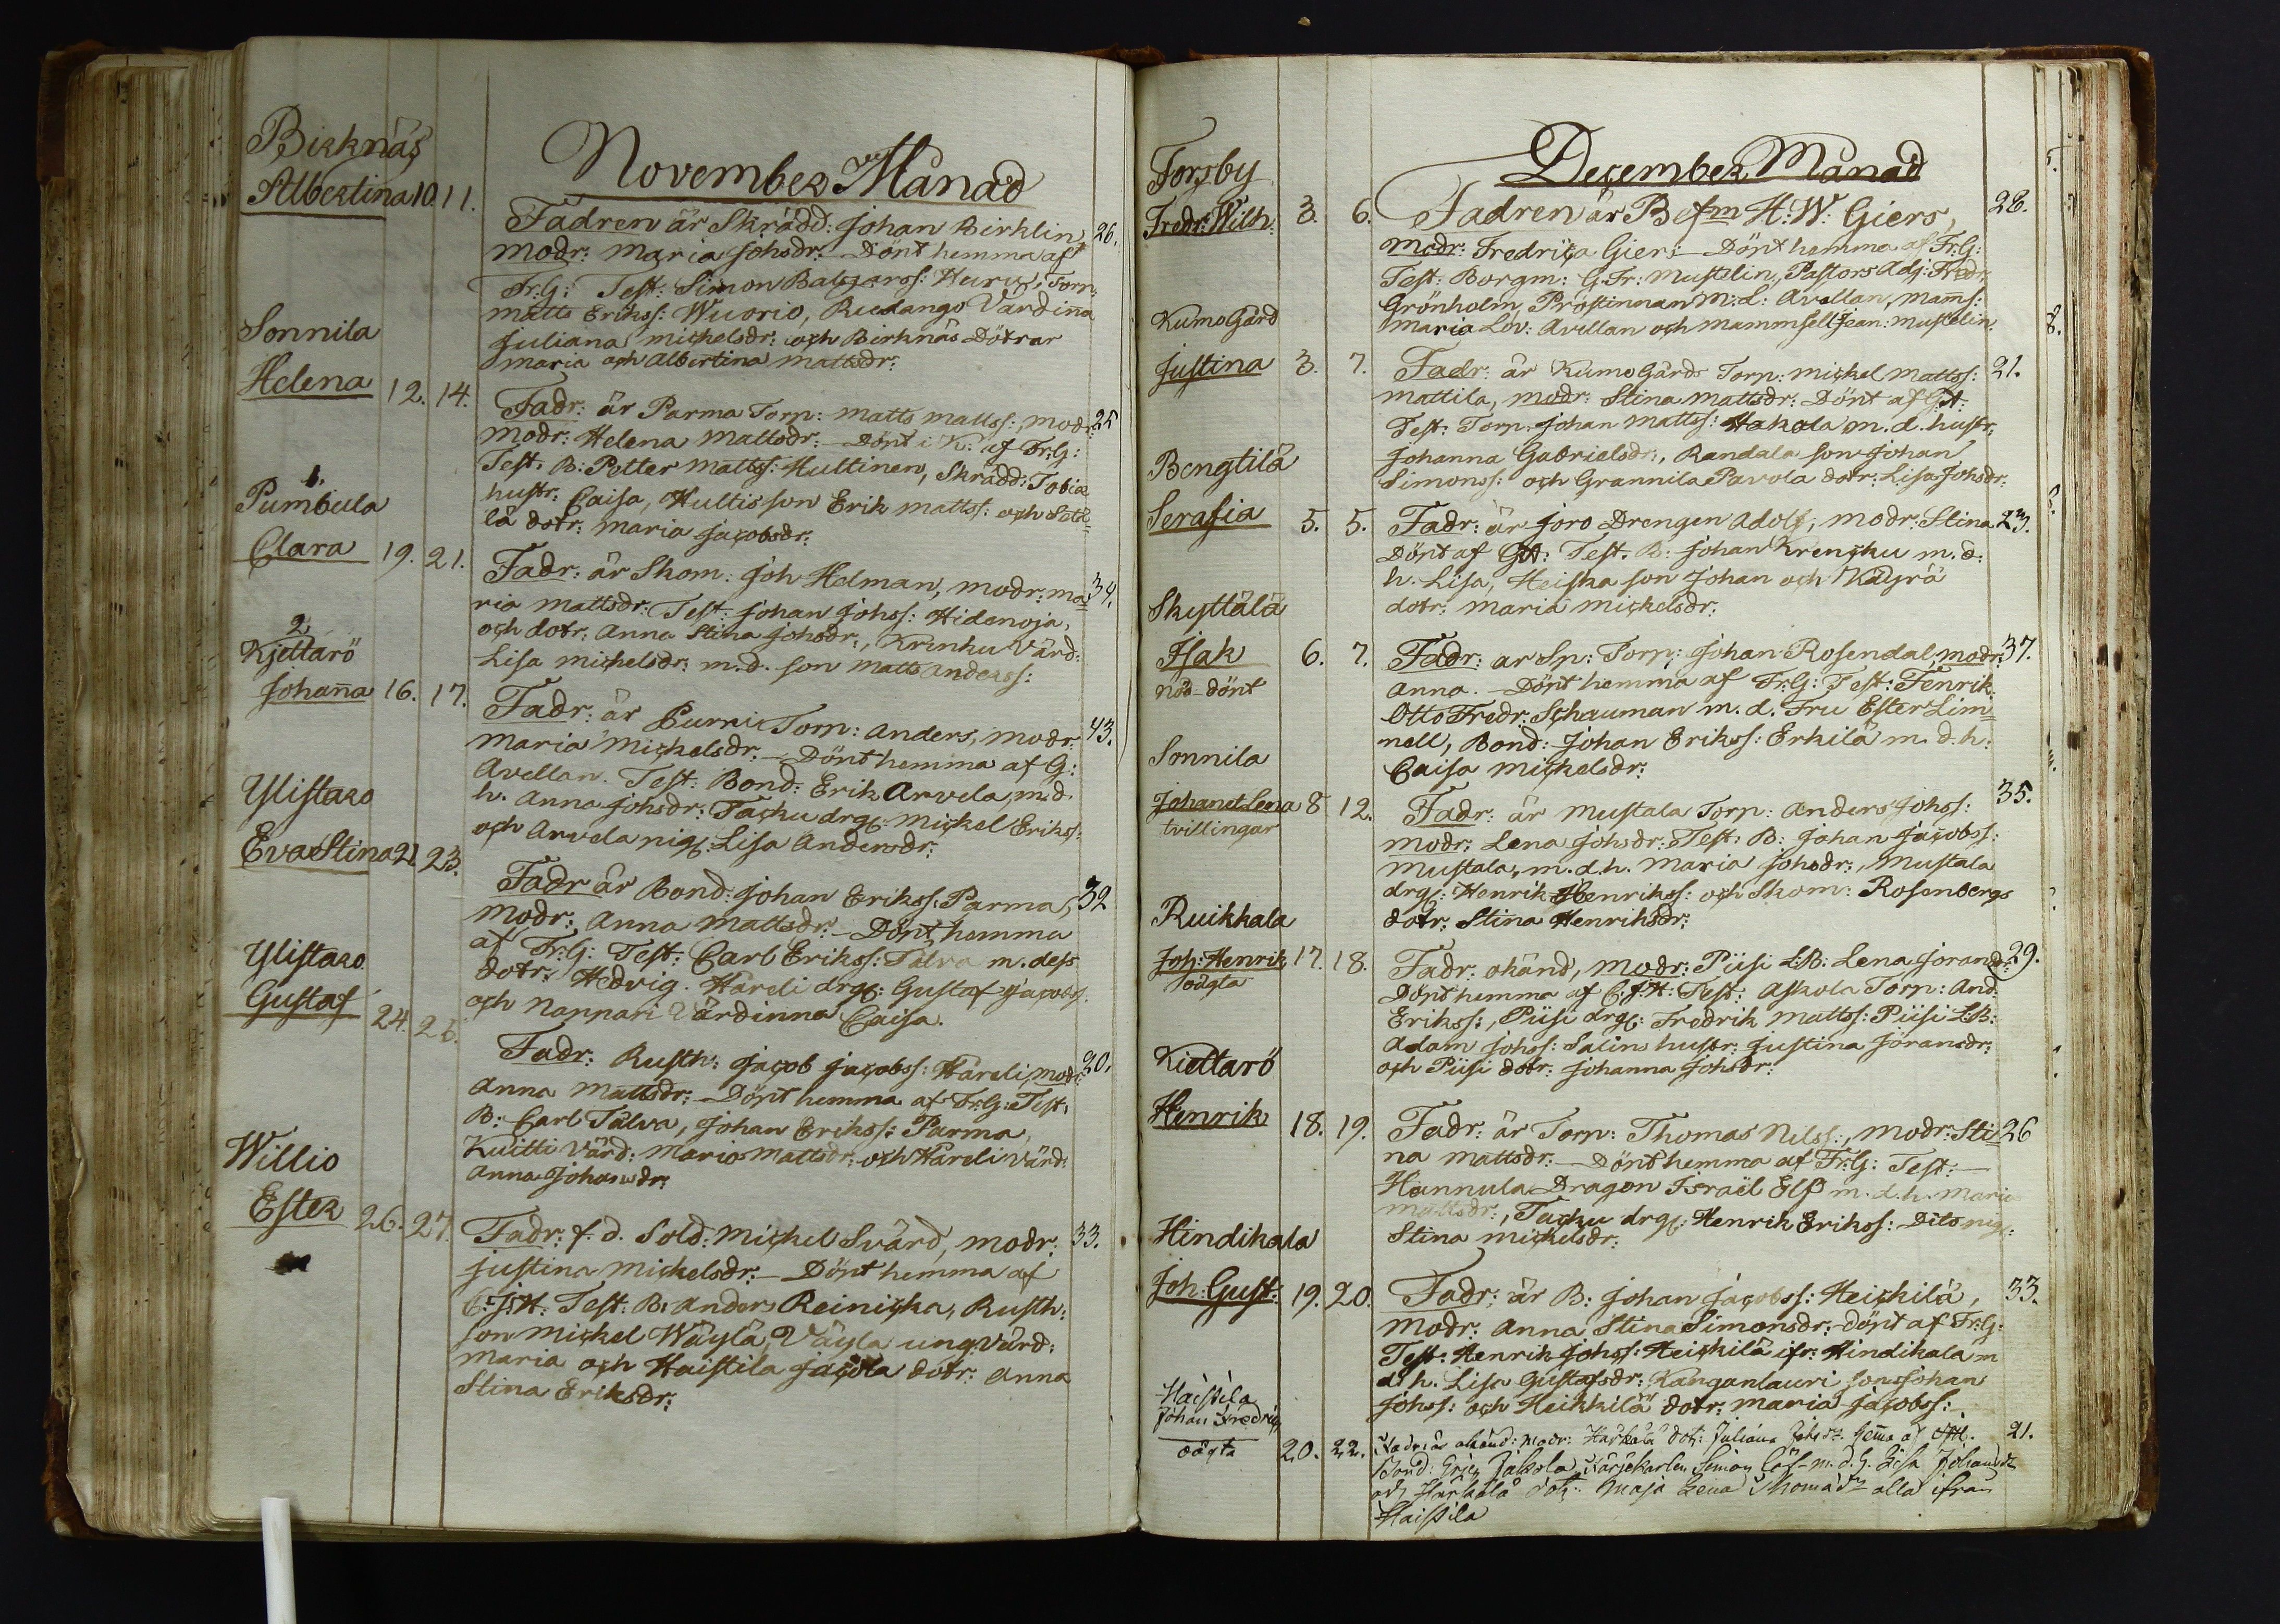 November Månad
Birknäs
Albertina 10. 11.
Fadren är Skrädd: Johan Birklin, 26.
modr: Maria Johsdr: Dönt hemma af
Fr:G: Test: Simon Baltzarss: Heurus, Torp:
Matts Erikss: Wuorio, Rudango Värdina
Juliana Michelsdr: och Birknäs Dötrar
Maria och Albertina Mattsdr:
Sonnila
Helena 12. 14.
Fadr: är Parma Torp: Matts Mattss:, modr: 25
Modr: Helena Mattsdr: Dönt i K: af Fr:G:
Test: B: Petter Mattss: Hultinen, Skrädd: Tobia
hustr: Caisa, Hultis son Erik Mattss: och
lä dotr: Maria Jacobsdr:
1.
Pumbula
Clara 19. 21.
Fadr: är Skom: Joh Helman, modr: Ma= 34.
ria Mattsdr: Test: Johan Johss: Hidenoja,
och dotr: Anna Stina Johsdr:, Krenku Värd:
Lisa Michelsdr: m.d. son Matts Anderss:
2.
Kjettarö
Johanna 16. 17.
Fadr: är Purni Torp: Anders, modr: 43.
Maria Mickelsdr: – Dönt hemma af G:
Avellan. Test: Bond: Erik Arvela, m.d.
h. Anna Johsdr: Tacku drg: Mickel Erikss:
och Arvela pig: Lisa Andersdr:
Ylistaro
Eva Stina 21. 23.
Fadr är Bond: Johan Erikss: Parma, 32
Modr: Anna Mattsdr: – Dönt hemma
af Fr:G: Test: Carl Erikss: Talva m. dess
dotr: Hedvig. Håreli drg: Gustaf Jacobss.
och Nappari Värdinna Caisa.
Ylistaro
Gustaf 24. 26.
Fadr: Rusth: Jacob Jacobss: Håreli, modr: 20.
Anna Mattsdr: – Dönt hemma af Fr:G: Test:
B: Carl Talva, Johan Erikss: Parma,
Kuitti Värd: Maria Mattsdr: och Håreli Värd:
Anna Johansdr:
Willio
Ester 26. 27.
Fadr: f.d. Sold: Mickel Svärd, modr: 33.
Justina Mickelsdr: – Dönt hemma af
C:J:H: Test: B: Anders Reinicka, Rusth:
son Mickel Wäylä, Väyla ung Värd:
Maria och Haistila Jacola dotr: Anna
Stina Eriksdr:
December Månad
Forsby
Fredr: Wilh: 3. 6.
Fadren är Befm H:W: Giers, 28.
modr: Fredrica Giers – Dönt hemma af Fr:G:
Test: Borgm: G:Fr: Mustelin, Pastors Adj: Fredr
Grönholm, Prostinnan M:L: Avellan, Mams:
Maria Lov: Avellan och Mammsell Jean: Mustelin.
Kumo Gård
Justina 3. 7.
Fadr: är Kumo Gårds Torp: Mickel Mattss: 21.
Mattila, modr: Stina Mattsdr: Dönt af GA:
Test: Torp: Johan Mattss: Hakola m.d. hustr:
Johanna Gabrielsdr:, Randala son Johan
Simonss: och Grannila Pavola dotr: Lisa Johsdr:
Bengtilä
Serafia 5. 5.
Fadr: är Joro Drengen Adolf, modr: Stina 23.
Dönt af GA: Test: B: Johan Krencku m.d:
h. Lisa, Heiska son Johan och Käyrä
dotr: Maria Mickelsdr:
Skyttälä
Isak 6. 7.
nöd-dönt
Fadr: är Sp: Torp: Johan Rosendal, modr: 37.
Anna. – Dönt hemma af Fr:G: Test: Fenrik
Otto Fredr: Schauman m.d. Fru Ester Lim=
nell, Bond: Johan Erikss: Erkilä m.d.h:
Caisa Mickelsdr:
Sonnila
Johan et Lena 8 12.
tvillingar
Fadr: är Mustala Torp: Anders Johss: 35.
modr: Lena Johsdr: Test: B: Johan Jacobss:
Mustala, m.d.h. Maria Johsdr:, Mustala
drg: Henrik Henrikss: och Skom: Rosenbergs
dotr: Stina Henriksdr:
Ruikkala
Joh: Henrik 17. 18.
oägta
Fadr: okänd, Modr: Piisi L:B: Lena Joransdr: 29.
Dönt hemma af C:J:H: Test: Askola Torp: And:
Erikss:, Piisi drg: Fredrik Mattss: Piisi L:B:
Adam Johss: Salins hustr: Justina Joransdr:
och Piisi dotr: Johanna Johsdr:
Kiettarö
Henrik 18. 19.
Fadr: är Torp: Thomas Nilss:, modr: Sti= 26
na Mattsdr: – Dönt hemma af Fr:G: Test: –
Hannula Dragon Israël Elg m.d.h. Maria
Mattsdr:, Tacku drg: Henrik Erikss: Dito pig:
Stina Mickelsdr:
Hindikala
Joh: Gust: 19. 20.
Fadr: är B: Johan Jacobss: Heickilä, 33.
Modr: Anna Stina Simonsdr: – dönt af Fr:G:
Test: Henrik Johss: Heickilä ifr: Hindikala m
d.h. Lisa Gustafsdr: Kanganlauri son Johan
Johss: och Heikkilä dotr: Maria Jacobss:
Haistila
Johan Fredric
oägta 20. 22.
Fadr: är okänd: Modr: Harkälä dotr: Juliana Johsdr: hema af 21.
Bond: Eric Jakola, Färjekarlen Simon Löf m.d.h. Lisa Johansdr
och Harkälä dotr: Maja Lena Thomasdr alla ifrån
Haistila